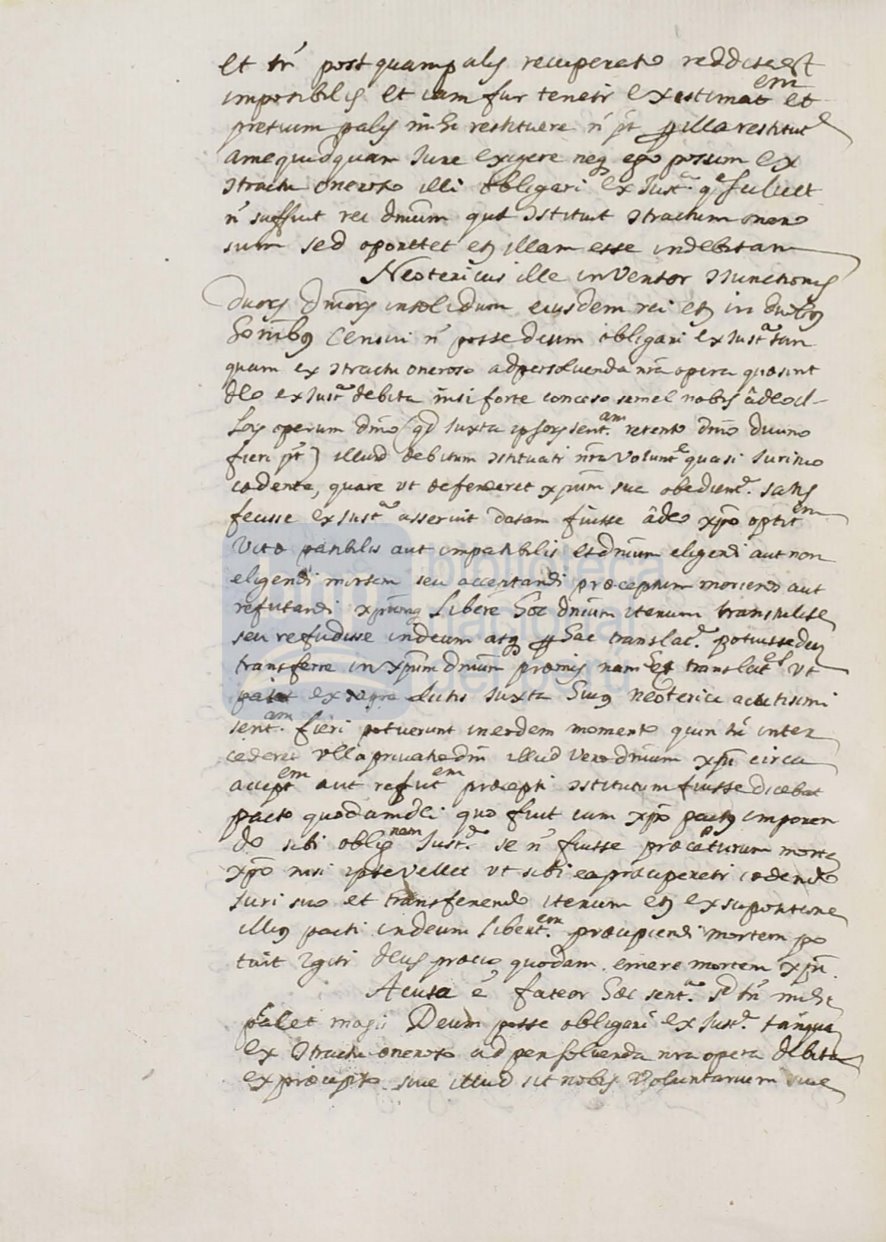 et tñ postquam palis recuperatio reddita est
impossibilis et iam fur tenetr existimatem et
pretium palis mihi restituere ñ pt p illa restitute
a me quidquam iure exigere neq ego possum ex
ɔtractu oneroso illi obligari ex Justa. qa scilicet
ñ sufficit rei dnium qud ɔstituit ɔtractum onero
sum sed oportet et illam esse indebitam
Neotericus ille inventor ɔiunctionis
duors dniors insolidum eiusdem rei et in duobq
hoĩnibq censuit ñ posse deum obligari ex Justa tan
quam ex ɔtractu oneroso ad persolvenda nra opera quae sint
deo ex Justa debita nisi forte concesso semel nobis a deo il-
lors operum dnio (qd iuxta ipsors sent.am retento dnio divino
fieri pt) illud debitum ɔstituati nra volunte quasi iuri suo
cedente, quare ut defenderet xpum sua obedient. satis
fecisse ex Justa asserint datam fuisse a deo xpo optitem
vitae passibilis aut impassibilis et dnium eligendi aut non
eligendi mortem seu acceptandi praeceptum moriendi aut
refutandi xpumq libere hoc dnium iterum transtulisse
seu refudisse in deum atq p hac translate. potuisse deum
transferre in xpum dnium praemis nam translate ut
ex supra dictis iuxta huiq neoterici acutissimi
sent.am fieri potuerunt in eodem momento quin tñ inter
cederet ulla privatio dni illud vero dnium xpi circa
acceptem aut refutem praecepti ɔstitutum fuisse dicebat
pacto quodam dei quo fuit cum xpo pactq imponen
do sibi obligonem Justa. se ñ fuisse praecepturum mortem
xpo nisi ipse vellet ut sibi ea praeciperetr cedendo
iuri suo et transferendo iterum et ex supositione
illiq pacti in deum libert.em praecipiendi mortem po
tuit igitr deus praecio quodam emere mortem xpi.
Acuta ẽ fateor haec sent.a sd tñ mihi
placet magis Deum posse obligari ex Justa. tanquam
ex ɔtractu oneroso ad persolvenda nra opera debita
ex praecepto sive illud sit nobis voluntarium sive